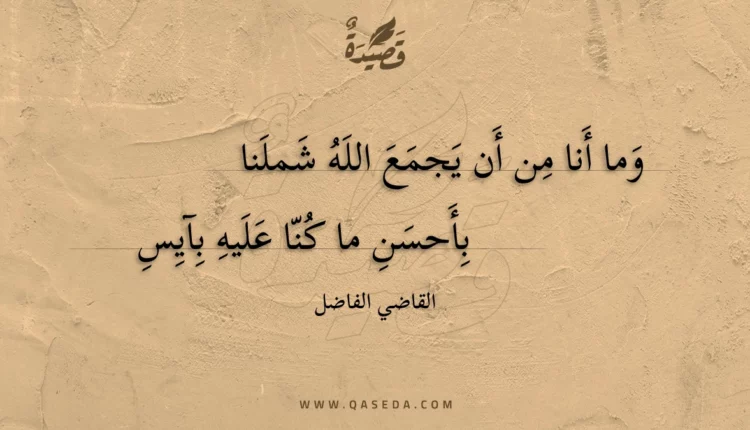 قَصِيْدَةٌ
وَما أَنا مِن أَن يَجمَعَ اللَهُ شَملَنا
بِأَحسَنِ ما كُنّا عَلَيهِ بِآيِسِ
القاضي الفاضل
WWW.QASEDA.COM